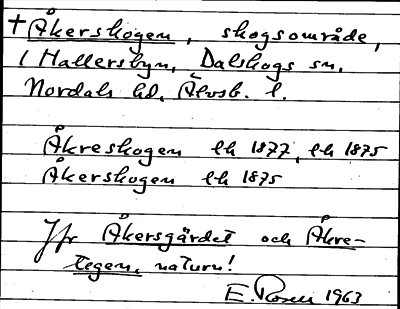 † Åkerskogen, skogsområde,
i Hallersbyn, Dalskogs sn,
Nordals hd, Älvsb. l.
Åkreskogen lh 1877, lh 1875
Åkerskogen lh 1875
Jfr Åkersgärdet och Åkre-
tegen, naturn!
E. Rosen 1963